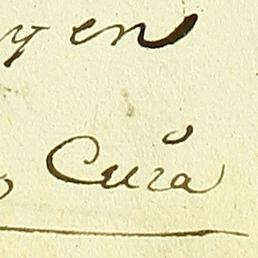 yen
Cura